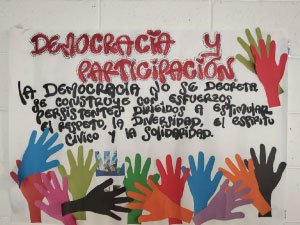 DEMOCRACIA Y
PARTICIPACIÓN.
LA DEMOCRACIA NO SE DECRETA
SE CONSTRUYE CON ESFUERZOS
PERSISTENTES DIRIGIDOS A ESTIMULAR
EL RESPETO, LA DIVERSIDAD, EL ESPÍRITU
CÍVICO Y LA SOLIDARIDAD.